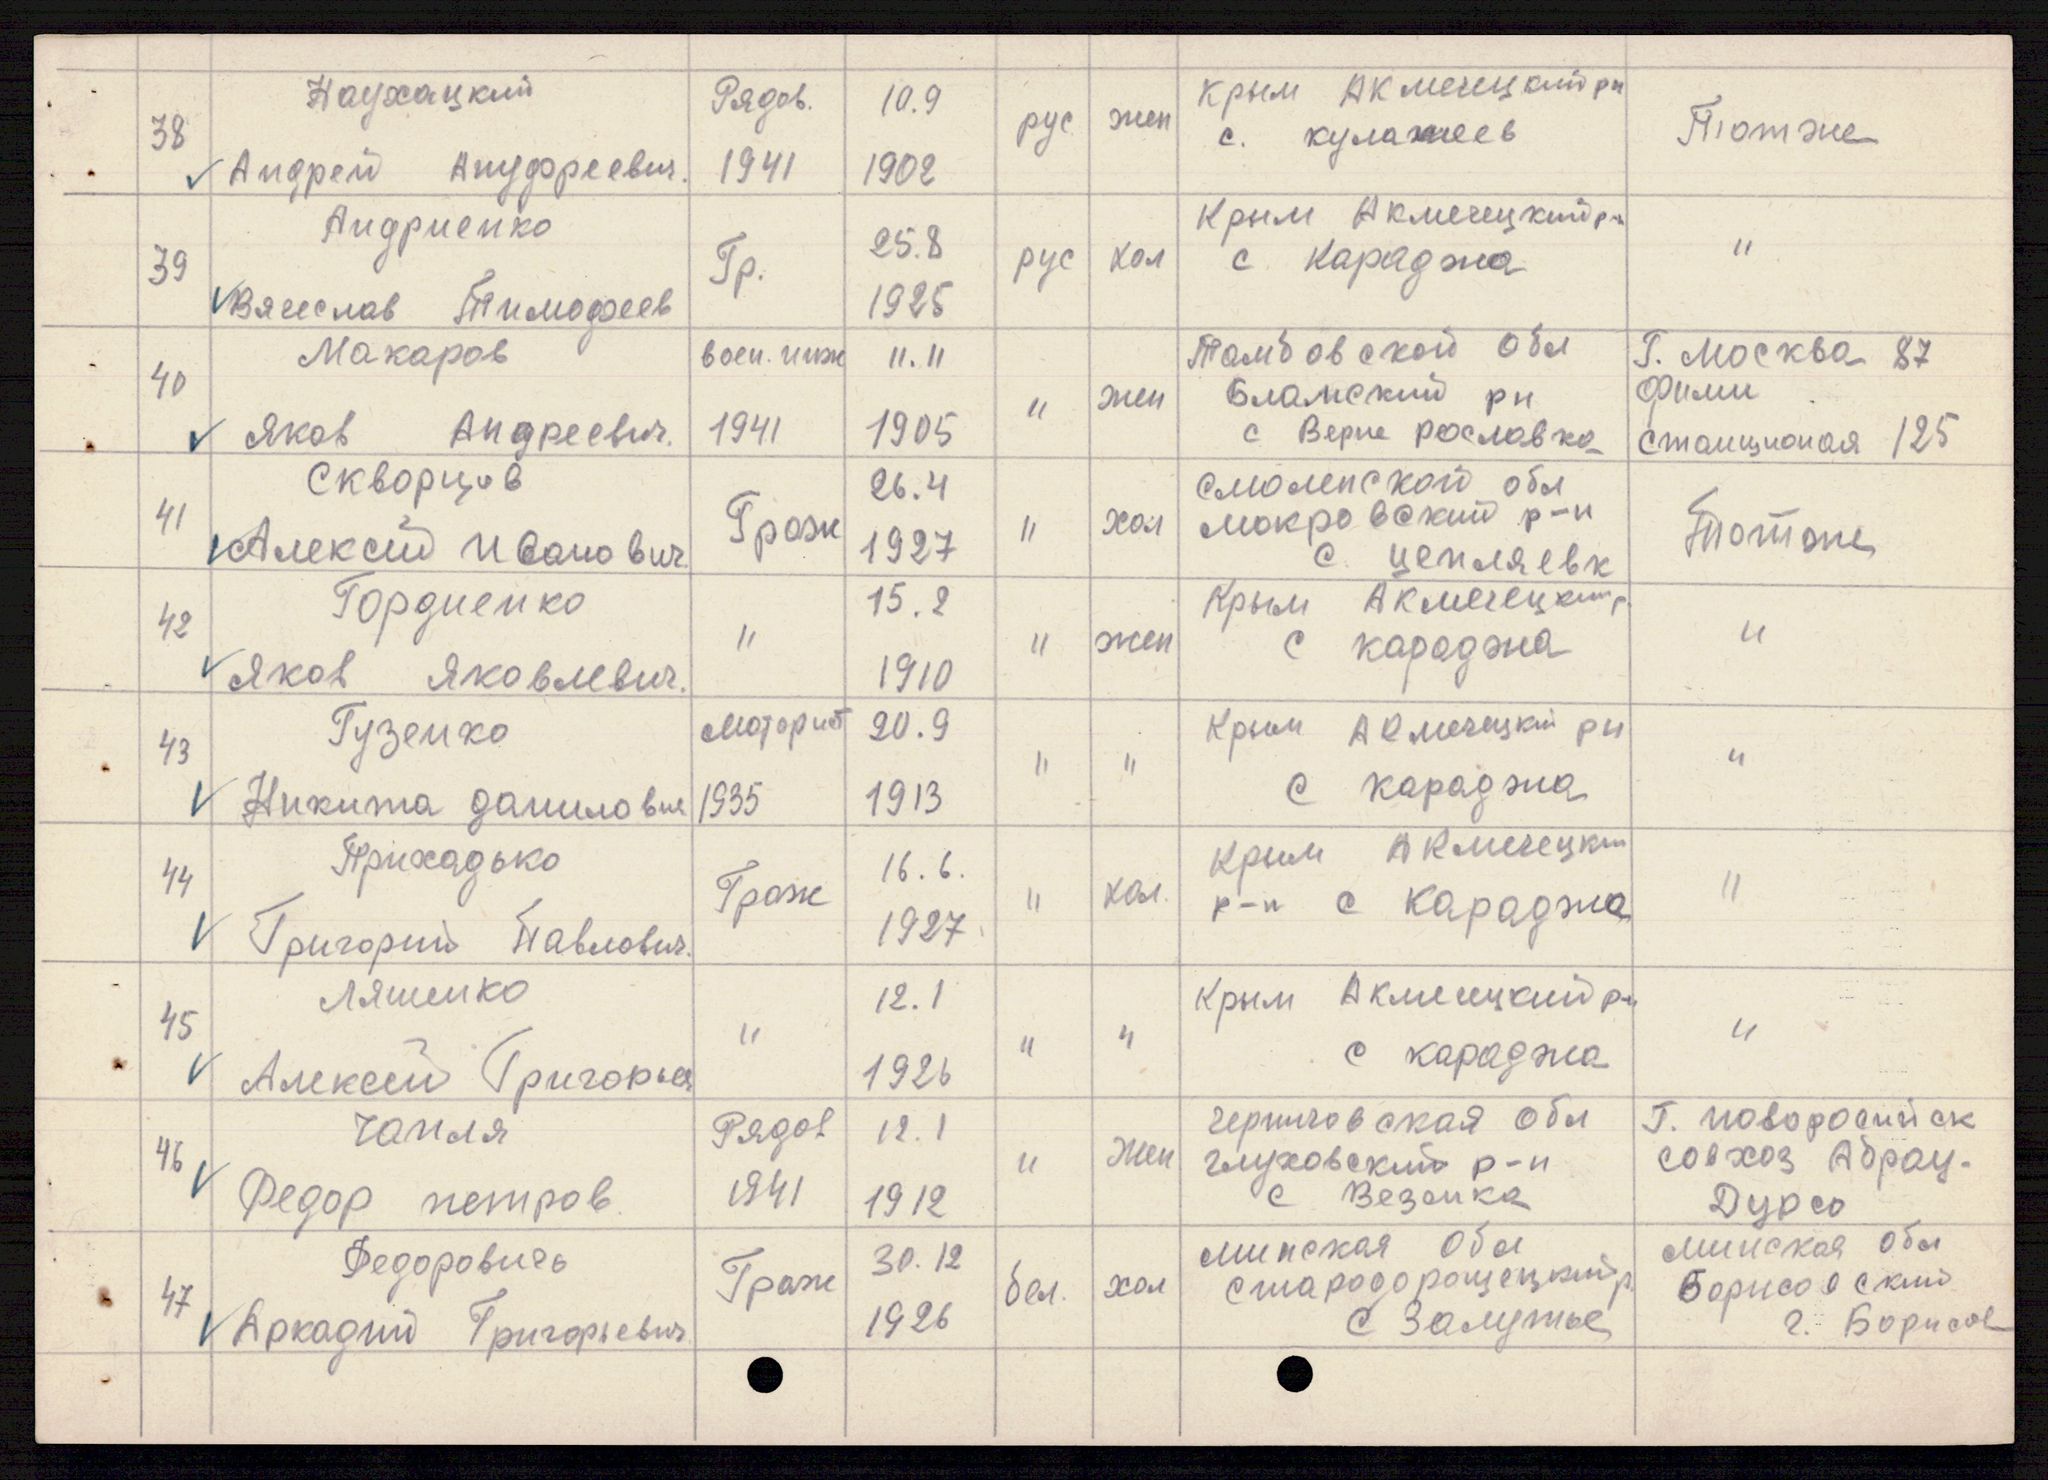 38 Наухацкий Рядов. 10.9 рус жен Крым Акмечецкий рн Тютже
с. кулатеев
✓ Андрей Ануфреевич. 1941 1902
39 Андриенко Гр. 25.8 рус хол Крым Акмечецкий р-н "
с Караджа
✓ Вячеслав Тимофеев 1925
40 Макаров воен. инж 11.11 " жен Тамбовской Обл Г. Москва 87
Бламский рн Фили
✓ Яков Андреевич. 1941 1905 с Верне рославка Станционая 125
41 Скворцов Граж 26.4 " хол Смоленской обл Тотже
мокровский р-н
✓ Алексей Иванович. 1927 с цепляевк
42 Гордиенко " 15.2 " жен Крым Акмечецкий р. "
с караджа
✓ Яков Яковлевич. 1910
43 Гузенко моторист 20.9 " " Крым Акмечецкий рн "
✓ Никита данилович 1935 1913 с караджа
44 Прихадько Граж 16.6. " хол. Крым Акмечецкий "
р-н с Караджа
✓ Григорий Павлович. 1927
45 Ляшенко " 12.1 " " Крым Акмечецкий р-н "
с караджа
✓ Алексей Григорьев 1926
46 Чапля Рядов 12.1 " Жен черниговская Обл Г. новоросийск
глуховский р-н совхоз Абрау-
✓ Федор петров. 1941 1912 с Везенка Дурсо
47 Федоровичь Граж 30.12 бел. хол минская Обл минская Обл
Стародорощецкий р. Борисовский
✓ Аркадий Григорьевич. 1926 с Залужье г. Борисов